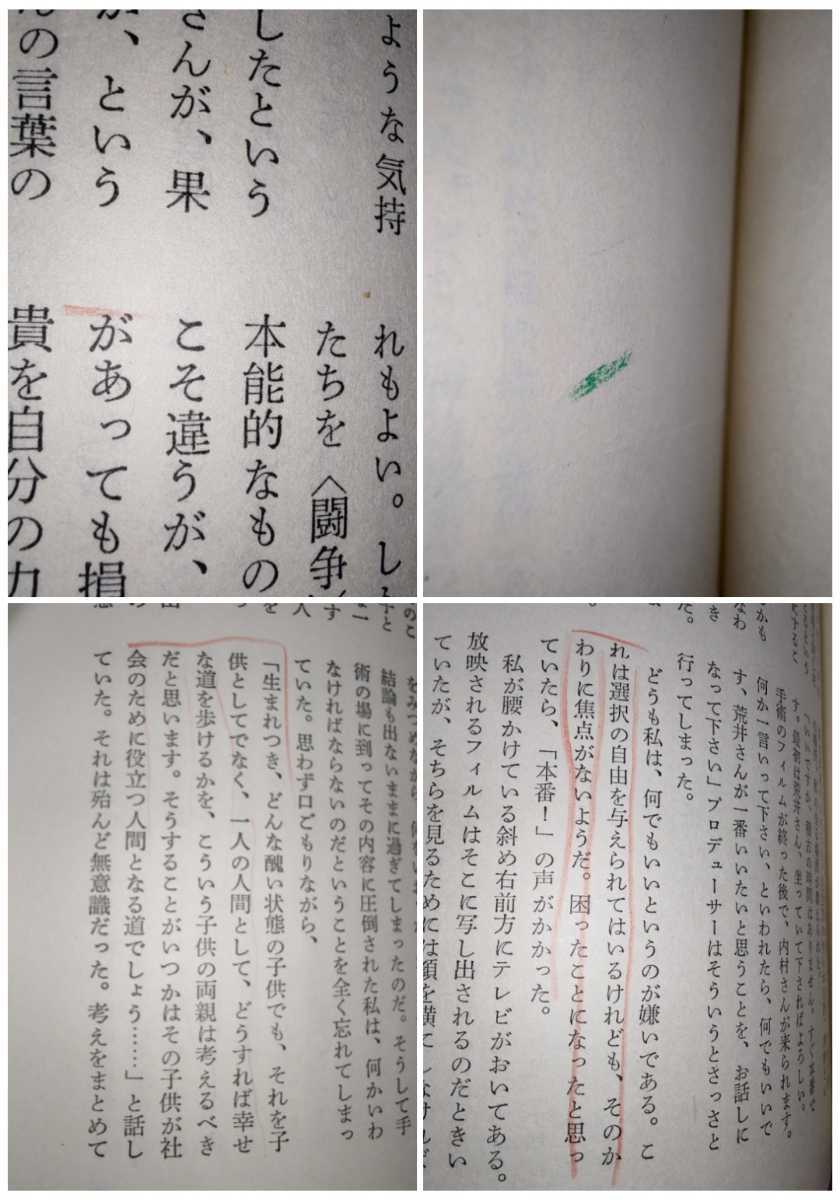 ような気持
したという
さんが、果
が、という
んの言葉の
れもよい。し
たちを〈闘争
本能的なもの
こそ違うが、
があっても損
貴を自分の力
をみつめながら
結論も出ないままに過ぎてしまったのだ。そうして手
術の場に到ってその内容に圧倒された私は、何かいわ
なければならないのだということを全く忘れてしまっ
ていた。思わず口ごもりながら、
「生まれつき、どんな醜い状態の子供でも、それを子
供としてでなく、一人の人間として、どうすれば幸せ
な道を歩けるかを、こういう子供の両親は考えるべき
だと思います。そうすることがいつかはその子供が社
会のために役立つ人間となる道でしょう……」と話し
ていた。それは殆んど無意識だった。考えをまとめて
す。最初は荒井さん、坐っていて下さればよろしい。
手術のフィルムが終った後で、内村さんが来られます。
何か一言いって下さい、といわれたら、何でもいいで
す、荒井さんが一番いいたいと思うことを、お話しに
なって下さい」プロデューサーはそういうとさっさと
行ってしまった。
どうも私は、何でもいいというのが嫌いである。こ
れは選択の自由を与えられてはいるけれども、そのか
わりに焦点がないようだ。困ったことになったと思っ
ていたら、「本番！」の声がかかった。
私が腰かけている斜め右前方にテレビがおいてある。
放映されるフィルムはそこに写し出されるのだときい
ていたが、そちらを見るためには頭を横てしなければ